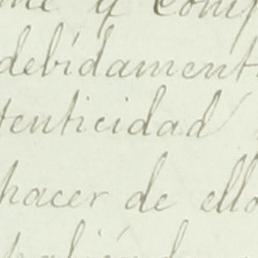 y
debidament
tenticidad
hacer de ello